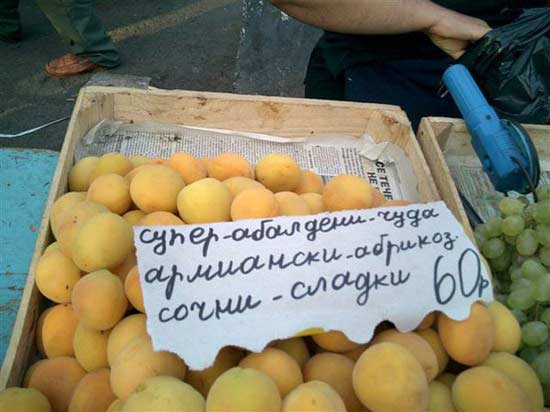 супер-абалдени-чуда
армиански-абрикоз.
сочни-сладки 60р
СЕ ТЕЧЕ